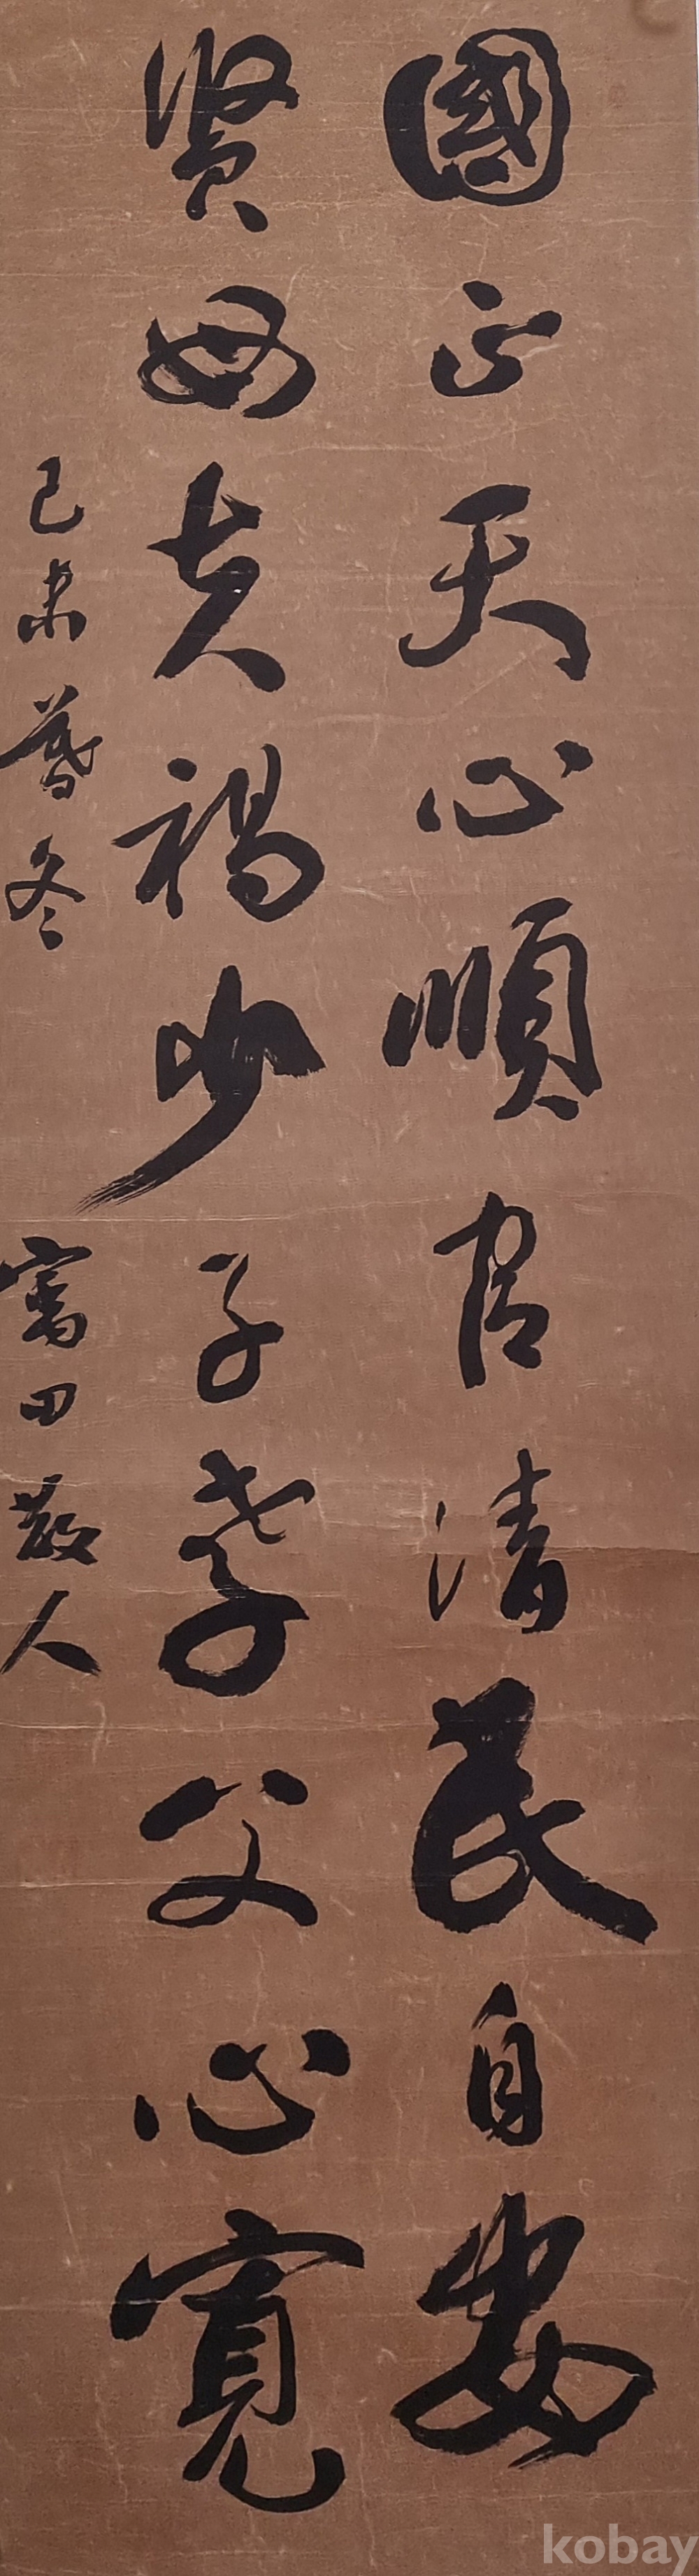 國正天心順官清民自安
賢夫禍少子孝父心寬
己未暮冬 田散人
kobay